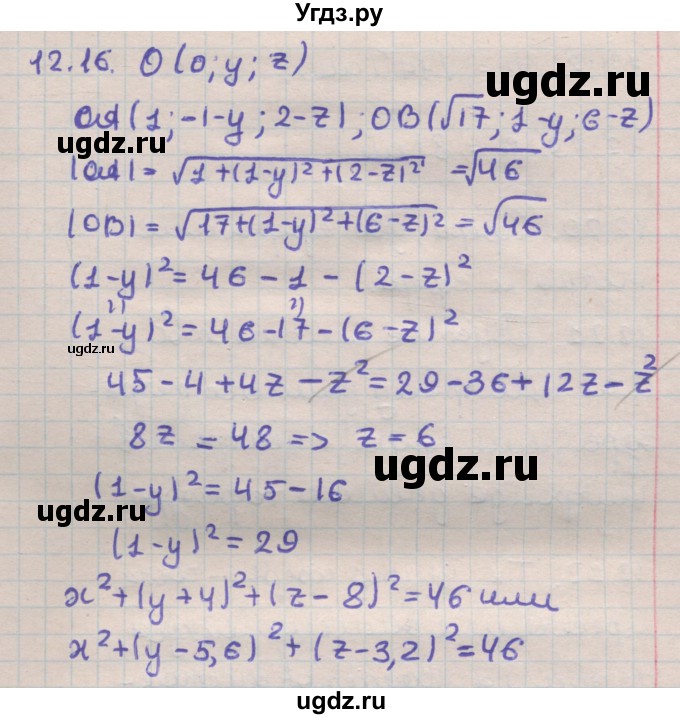 Угдз.ру
12.16. O(0; y; z)
ugdz.ru
OA(1; -1-y; 2-z); OB(√17; 1-y; 6-z)
ugdz.ru
|OA| = √1+(1-y)²+(2-z)² = √46
|OB| = √17+(1-y)²+(6-z)² = √46
(1-y)² = 46 - 1 - (2-z)²
(1-y)² = 46-17-(6-z)²
ugdz.ru
45 - 4 + 4z - z² = 29 - 36 + 12z - z²
8z = 48 => z = 6
ugdz.ru
(1-y)² = 45-16
ugdz.ru
(1-y)² = 29
x²+(y+4)²+(z-8)² = 46 или
x²+(y-5,6)²+(z-3,2)² = 46
ugdz.ru
ugdz.ru